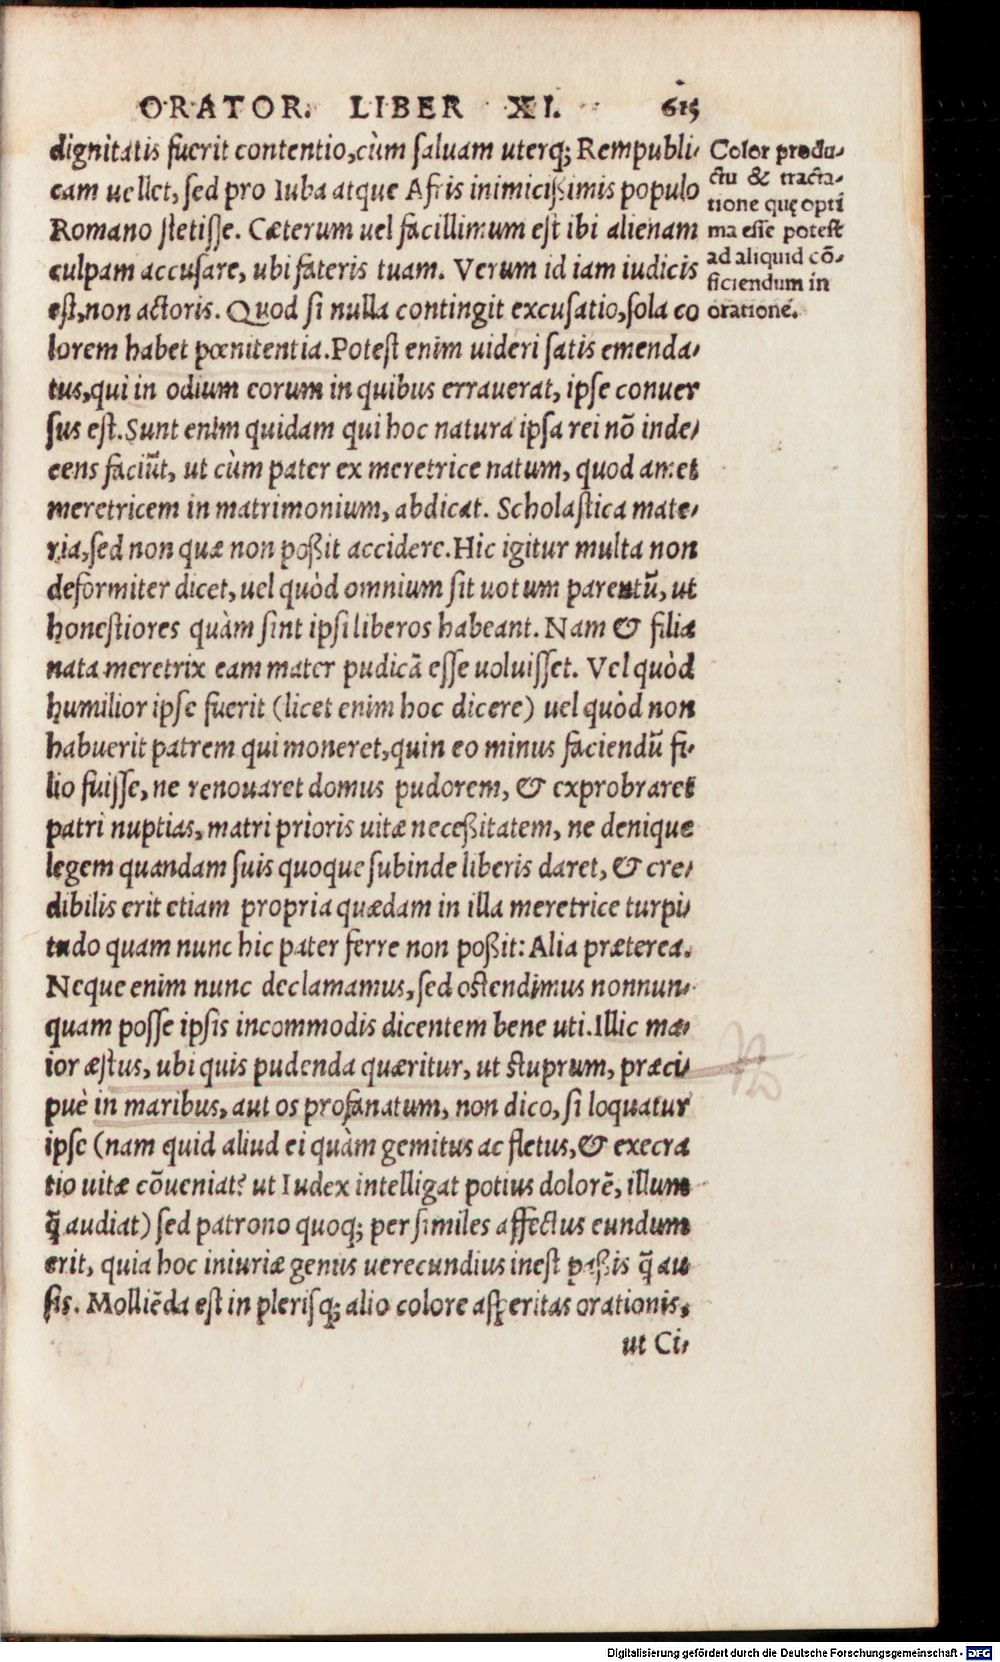 ORATOR. LIBER XI. 615
dignitatis fuerit contentio, cùm saluam uterq; Rempubli-
cam uellet, sed pro Iuba atque Afris inimicißimis populo
Romano stetisse. Cæterum uel facillimum est ibi alienam
culpam accusare, ubi fateris tuam. Verum id iam iudicis
est, non actoris. Quod si nulla contingit excusatio, sola co
lorem habet pœnitentia. Potest enim uideri satis emenda-
tus, qui in odium eorum in quibus errauerat, ipse conuer
sus est. Sunt enim quidam qui hoc natura ipsa rei nō inde-
cens faciūt, ut cùm pater ex meretrice natum, quod amet
meretricem in matrimonium, abdicat. Scholastica mate-
ria, sed non quæ non poßit accidere. Hic igitur multa non
deformiter dicet, uel quòd omnium sit uotum parentū, ut
honestiores quàm sint ipsi liberos habeant. Nam & filiæ
nata meretrix eam mater pudicā esse uoluisset. Vel quòd
humilior ipse fuerit (licet enim hoc dicere) uel quòd non
habuerit patrem qui moneret, quin eo minus faciendū fi-
lio fuisse, ne renouaret domus pudorem, & exprobraret
patri nuptias, matri prioris uitæ neceßitatem, ne denique
legem quandam suis quoque subinde liberis daret, & cre-
dibilis erit etiam propria quædam in illa meretrice turpi-
tudo quam nunc hic pater ferre non poßit: Alia præterea.
Neque enim nunc declamamus, sed ostendimus nonnun-
quam posse ipsis incommodis dicentem bene uti. Illic ma-
ior æstus, ubi quis pudenda quæritur, ut stuprum, præci-
puè in maribus, aut os profanatum, non dico, si loquatur
ipse (nam quid aliud ei quàm gemitus ac fletus, & execra
tio uitæ cōueniat? ut Iudex intelligat potius dolorē, illum
q̄ audiat) sed patrono quoq; per similes affectus eundum
erit, quia hoc iniuriæ genus uerecundius inest paßis q̄ au
sis. Molliēda est in plerisq; alio colore asperitas orationis,
ut Ci-
Color produ-
ctu & tracta-
tione quę opti
ma esse potest
ad aliquid cō-
ficiendum in
orationē.
Digitalisierung gefördert durch die Deutsche Forschungsgemeinschaft - DFG